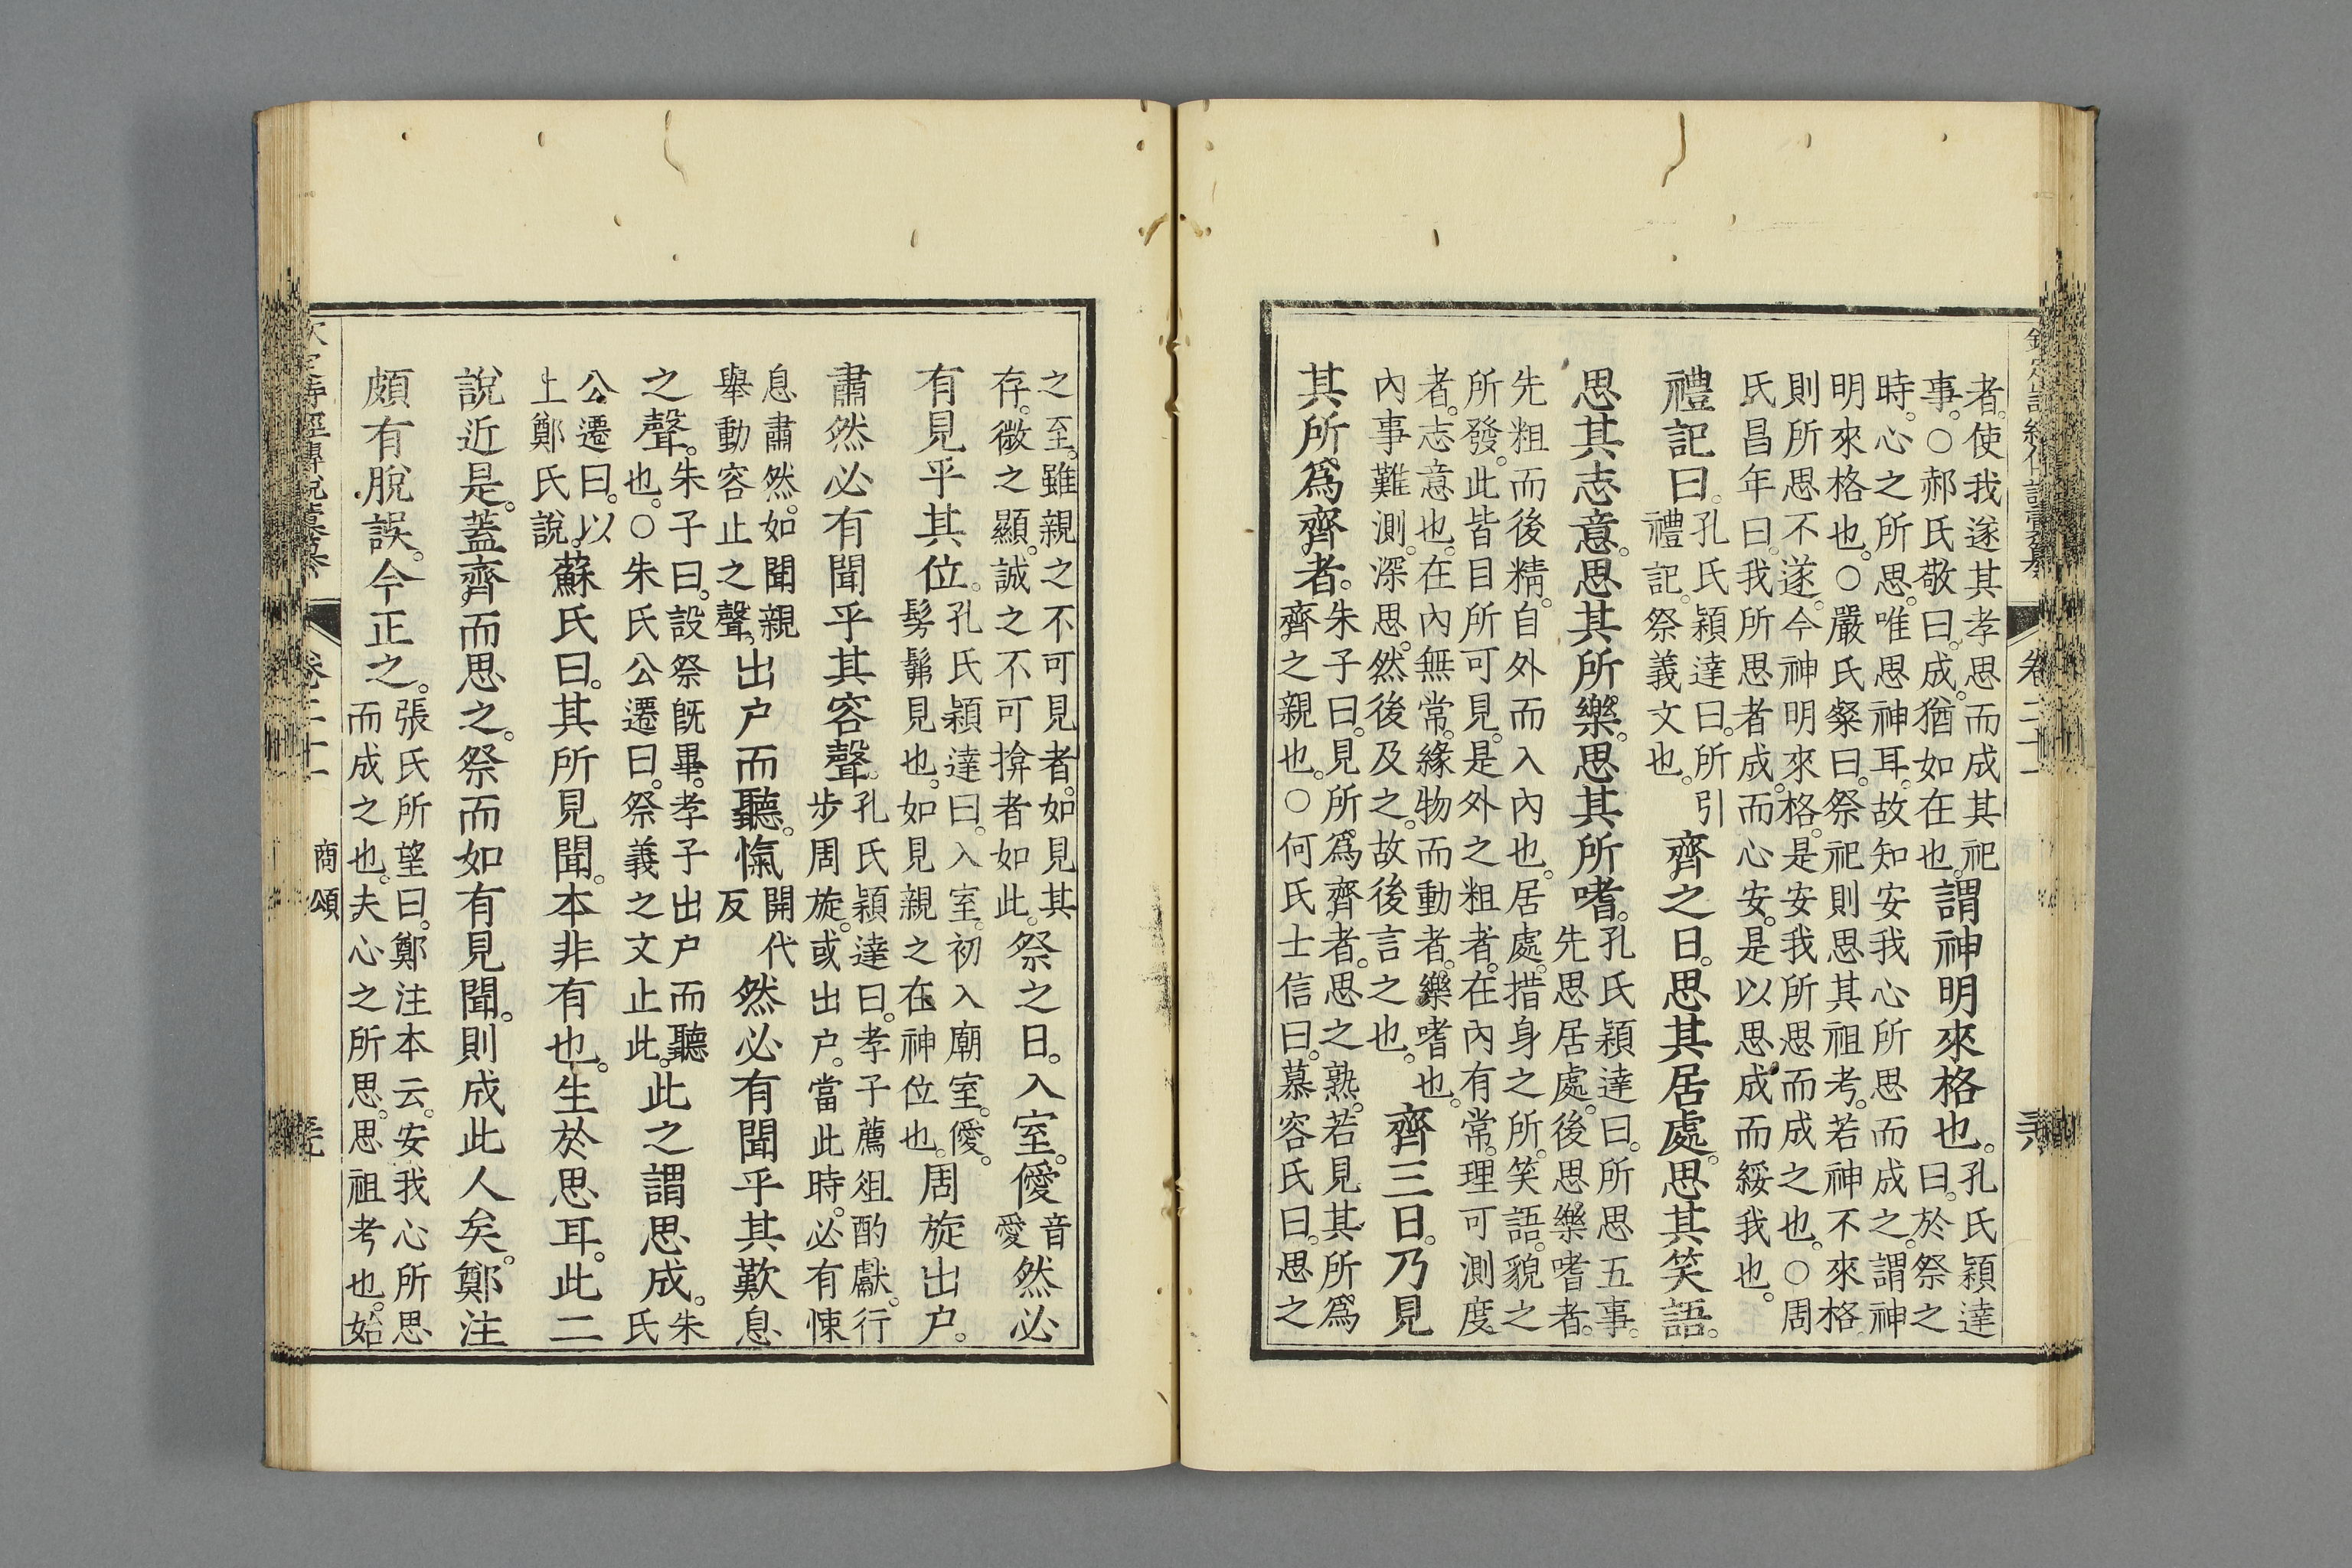 欽定詩經傳說彙纂 卷二十一
者。使我遂其孝思而成其祀
事。○郝氏敬曰。成。猶如在也。謂神明來格也。孔氏穎達
曰。於祭之
時。心之所思。唯思神耳。故知安我心所思而成之。謂神
明來格也。○嚴氏粲曰。祭祀則思其祖考。若神不來格。
則所思不遂。今神明來格。是安我所思而成之也。○周
氏昌年曰。我所思者成。而心安。是以思成而綏我也。
禮記曰。孔氏穎達曰。所引
禮記。祭義文也。齊之日。思其居處。思其笑語。
思其志意。思其所樂。思其所嗜。孔氏穎達曰。所思五事。
先思居處。後思樂嗜者。
先粗而後精。自外而入內也。居處。措身之所。笑語。貌之
所發。此皆目所可見。是外之粗者。在內有常。理可測度
者。志意也。在內無常。緣物而動者。樂嗜也。
內事難測。深思。然後及之。故後言之也。齊三日。乃見
其所爲齊者。朱子曰。見所爲齊者。思之熟。若見其所爲
齊之親也。○何氏士信曰。慕容氏曰。思之
之至。雖親之不可見者。如見其
存。微之顯。誠之不可揜者如此。祭之日。入室。僾音
愛然必
有見乎其位。孔氏穎達曰。入室。初入廟室。僾。
髣髴見也。如見親之在神位也。周旋出户。
肅然必有聞乎其容聲。孔氏穎達曰。孝子薦俎酌獻。行
步周旋。或出户。當此時。必有悚
息肅然。如聞親
舉動容止之聲。出户而聽。愾開代
反然必有聞乎其歎息
之聲。朱子曰。設祭旣畢。孝子出户而聽
也。○朱氏公遷曰。祭義之文止此。此之謂思成。朱
氏
公遷曰。以
上鄭氏說。蘇氏曰。其所見聞。本非有也。生於思耳。此二
說近是。蓋齊而思之。祭而如有見聞。則成此人矣。鄭注
頗有脫誤。今正之。張氏所望曰。鄭注本云。安我心所思
而成之也。夫心之所思。思祖考也。始
卷二十一 商頌